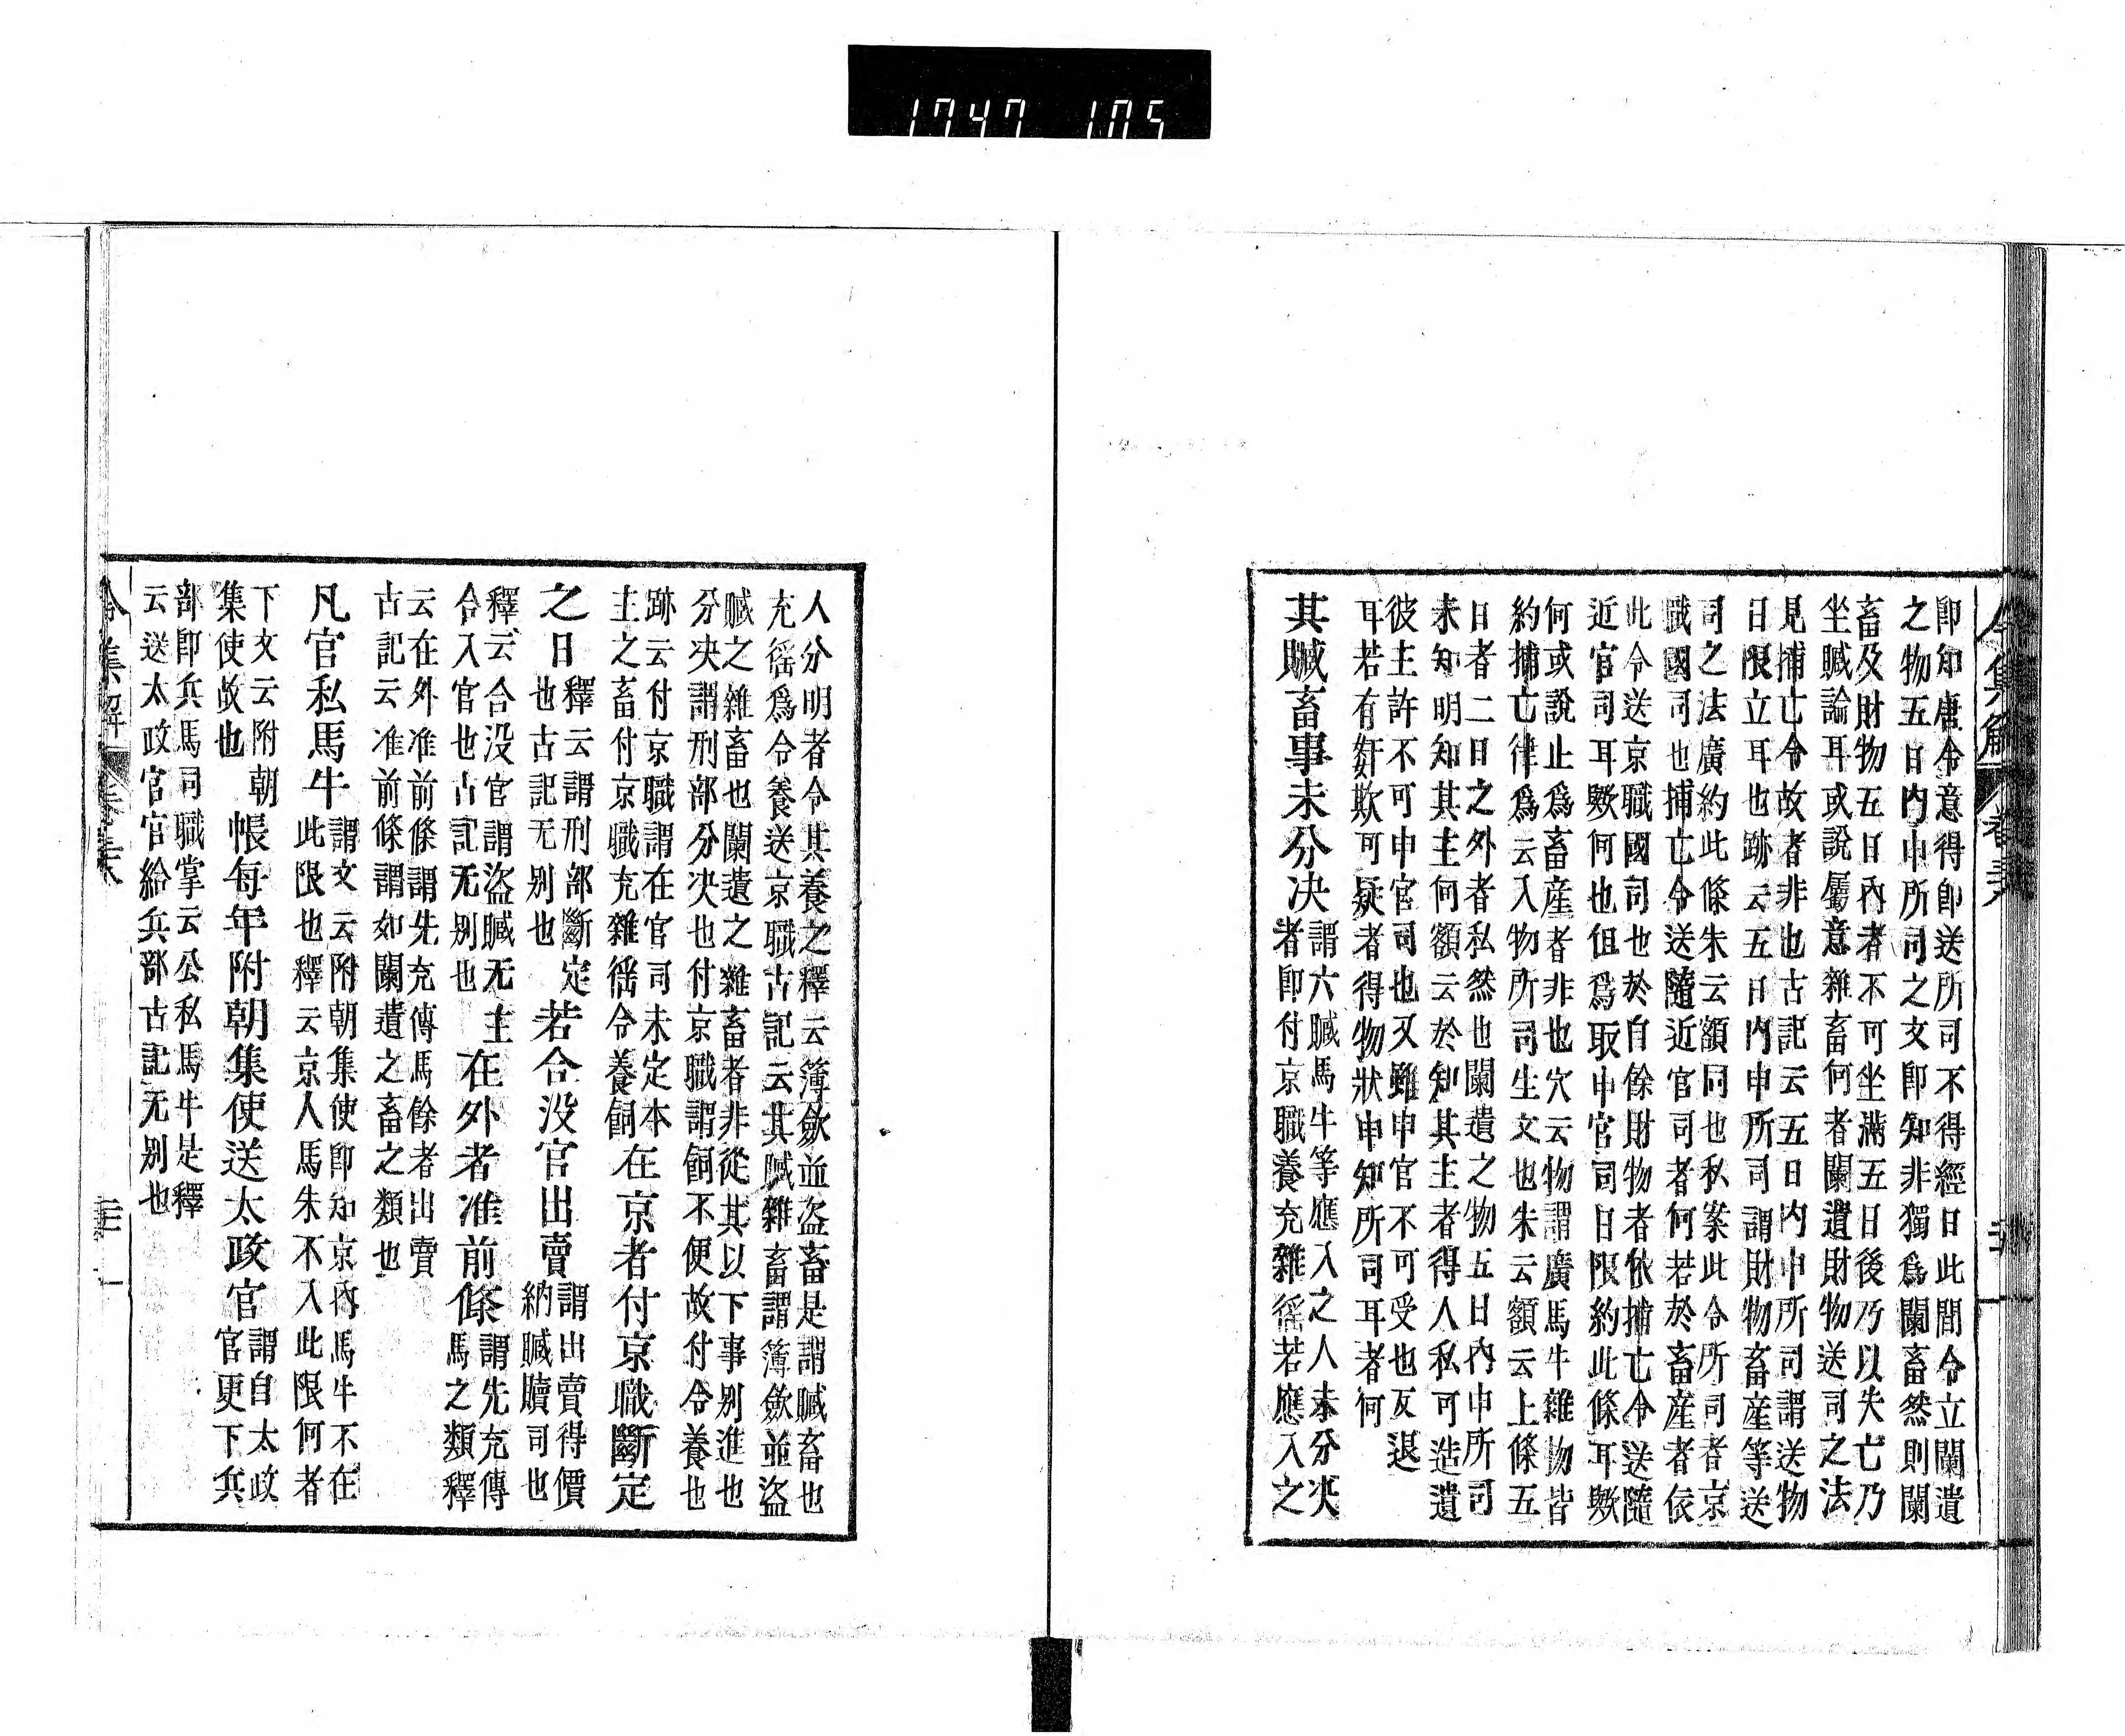 1747 105
卽知唐令意得卽送所司不得經日此間令立闌遺
之物五日內申所司之文卽知非獨爲闌畜然則闌
畜及財物五日內者不可坐滿五日後乃以失亡乃
坐贓論耳或說屬意雜畜何者闌遺財物送司之法
見捕亡令故者非也古記云五日內申所司謂送物
日限立耳也跡云五日內申所司謂財物畜產等送
司之法廣約此條朱云額同也私案此令所司者京
職國司也捕亡令送隨近官司者何若於畜產者依
此令送京職國司也於自餘財物者依捕亡令送隨
近官司耳歟何也但爲取申官司日限約此條耳歟
何或說止爲畜產者非也穴云物謂廣馬牛雜物皆
約捕亡律爲云入物所司生文也朱云額云上條五
日者二日之外者私然也闌遺之物五日內申所司
未知明知其主何額云於知其主者得人私可造遺
彼主許不可申官司也又雖申官不可受也反退
耳若有奸欺可疑者得物狀申知所司耳者何
其贓畜事未分決
謂六贓馬牛等應入之人未分決
者卽付京職養充雜徭若應入之
人分明者令其養之釋云簿斂並盜畜是謂贓畜也
充徭爲令養送京職古記云其贓雜畜謂簿斂並盜
贓之雜畜也闌遺之雜畜者非從其以下事別進也
分決謂刑部分決也付京職謂飼不便故付令養也
跡云付京職謂在官司未定本
主之畜付京職充雜徭令養飼
在京者付京職斷定
之日
釋云謂刑部斷定
也古記无別也
若合沒官出賣
謂出賣得價
納贓贖司也
釋云合沒官謂盜贓无主
合入官也古記无別也
在外者准前條
謂先充傳
馬之類釋
云在外准前條謂先充傳馬餘者出賣
古記云准前條謂如闌遺之畜之類也
凡官私馬牛
謂文云附朝集使卽知京內馬牛不在
此限也釋云京人馬朱不入此限何者
下文云附朝
集使故也
帳每年附朝集使送太政官
謂自太政
官更下兵
部卽兵馬司職掌云公私馬牛是釋
云送太政官官給兵部古記无別也
令集解